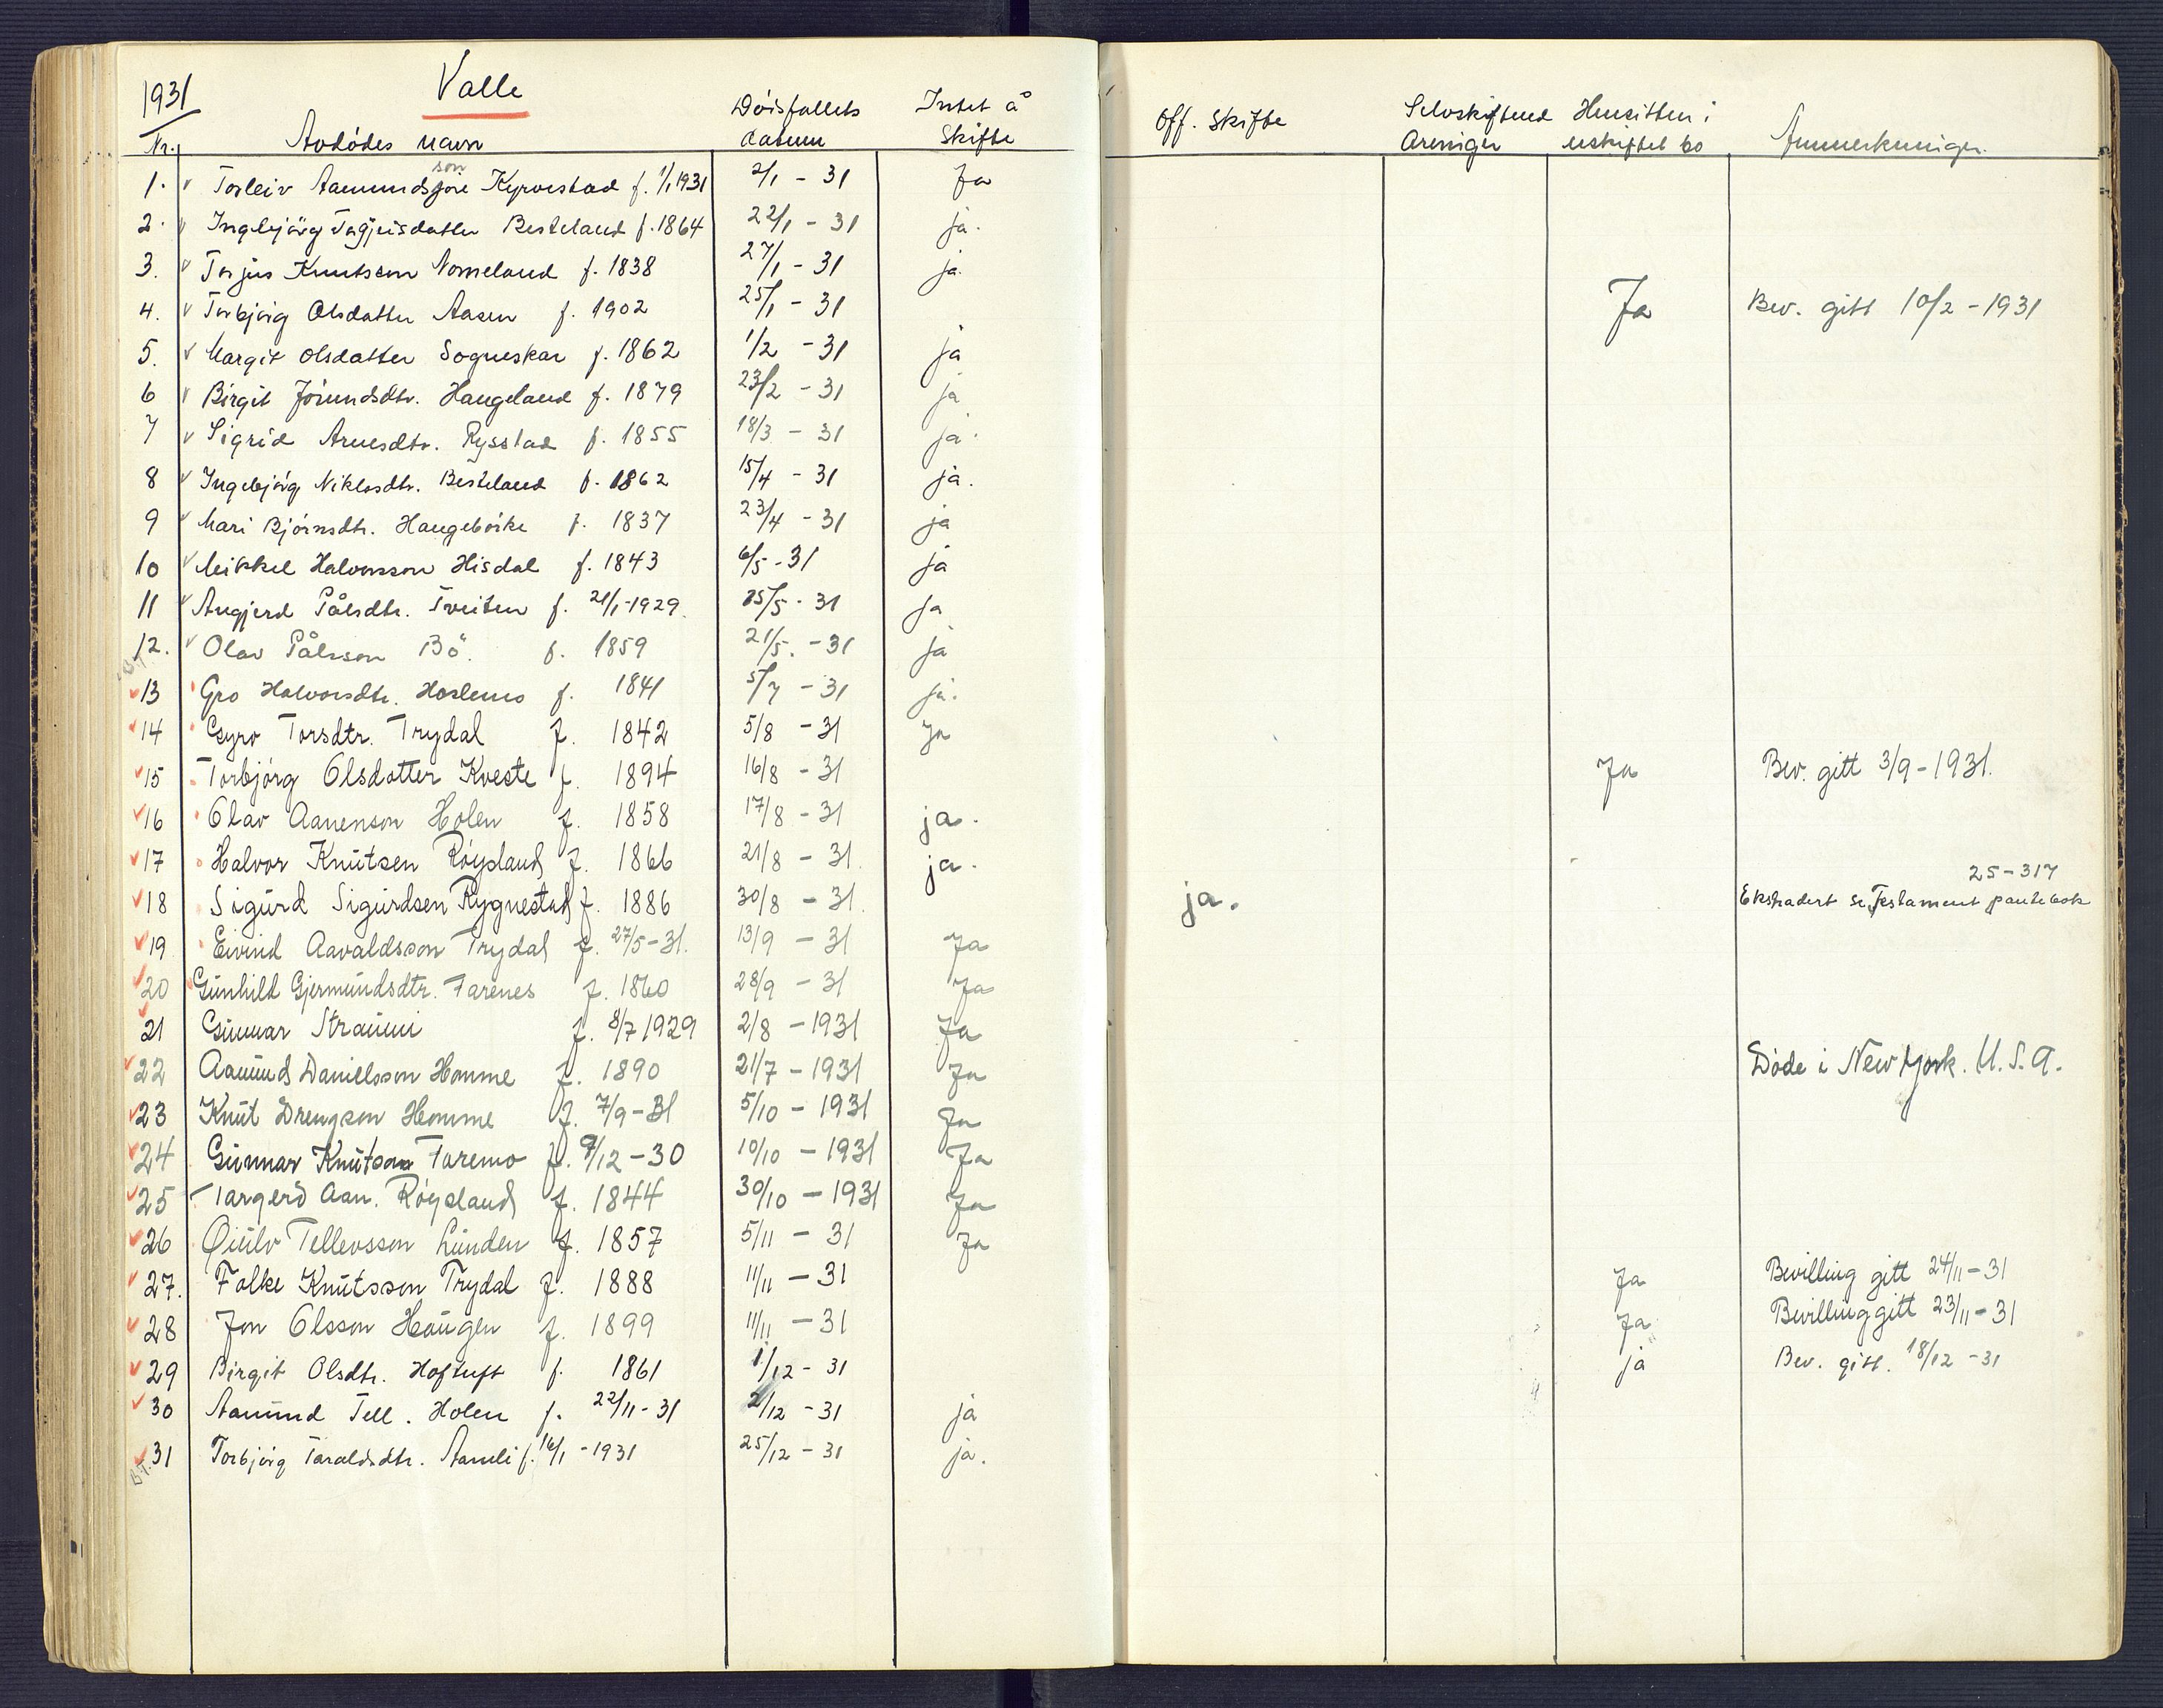 1931 Valle
Nr. Avdødes navn Dødsfallets datum Intet å skifte Off. Skifte Selvskiftend Arvinger Hensitten i uskiftet bo Anmerkninger.
1. Torleiv Aamundsson f. 1/1 1931 2/1 - 31 Ja
2. Ingebjörg Besteland f. 1864 22/1 - 31 ja.
3. Torjus Knutsson Nomeland f. 1838 27/1 - 31 ja.
4. Torbjørg Olsdatter Aasen f. 1902 25/1 - 31 Ja Bev. gitt 10/2 - 1931
5. Margit Olsdatter Sogneskar f. 1862 1/2 - 31 ja
6 Birgit Jórundsdtr. Haugeland f. 1879 23/2 - 31 ja
7 Sigrid Arnesdtr. Rysstad f. 1855 18/3 - 31 ja.
8 Ingebjórg Niklosdtr. Besteland f. 1862 15/4 - 31 ja.
9 Mari Bjórnsdtr. Haugebóike f. 1837 23/4 - 31 ja
10 Mikkel Halvorsson Hisdal f. 1843 6/5 - 31 ja
11 Angjerd Pålsdtr. Tveiten f. 21/1-1929. 25/5 - 31 ja
12. Olav Pålsson Bö. f. 1859 21/5. - 31 ja
13 Gro Halvorsdtr. Harlemo f. 1841 5/7 - 31 ja.
14 Gyro Torsdtr. Trydal f. 1842 5/8 - 31 Ja
15 Torbjórg Olsdatter Kveste f. 1894 16/8 - 31 Ja Bev. gitt 3/9 - 1931.
16 Olav Aanenson Holen f. 1858 17/8 - 31 ja.
17 Halvor Knutsen Róysland f. 1866 21/8 - 31. ja.
18 Sigurd Sigurdsen Rygnestad f. 1886 30/8 - 31. ja. Ekstradert se Testament pantebok 25-317
19 Eivind Aavaldsson Trydal f. 27/5 - 31. 13/9 - 31 Ja
20 Gunhild Gjermundsdtr. Farenes f. 1860 28/9 - 31 Ja
21 Gunnar Straumi f. 8/7 1929 2/8 - 1931 Ja
22 Aamund Danielsson Homme f. 1890 21/7 - 1931 Ja Døde i New York. U.S.A.
23 Knut Drengson Homme f. 7/9 - 31 5/10 - 1931 Ja
24 Gunnar Knutson Faremo f. 9/12 - 30 10/10 - 1931 Ja
25 Targerd Aan. Róysland f. 1844 30/10 - 1931 Ja
26 Øiulv Tellevsson Lunden f. 1857 5/11 - 31 Ja
27. Folke Knutsson Trydal f. 1888 11/11 - 31 Ja Bevilling gitt 24/11 - 31
28 Jon Olsson Haugen f. 1899 11/11 - 31 Ja Bevilling gitt 23/11 - 31
29 Birgit Olsdtr. Hoftuft f. 1861 1/12 - 31 ja Bev. gitt. 18/12 - 31
30 Aamund Tell. Holen f. 22/11 - 31 2/12 - 31 ja
31 Torbjórg Taraldsdtr. Aamli f. 16/1 - 1931 25/12 - 31 ja.